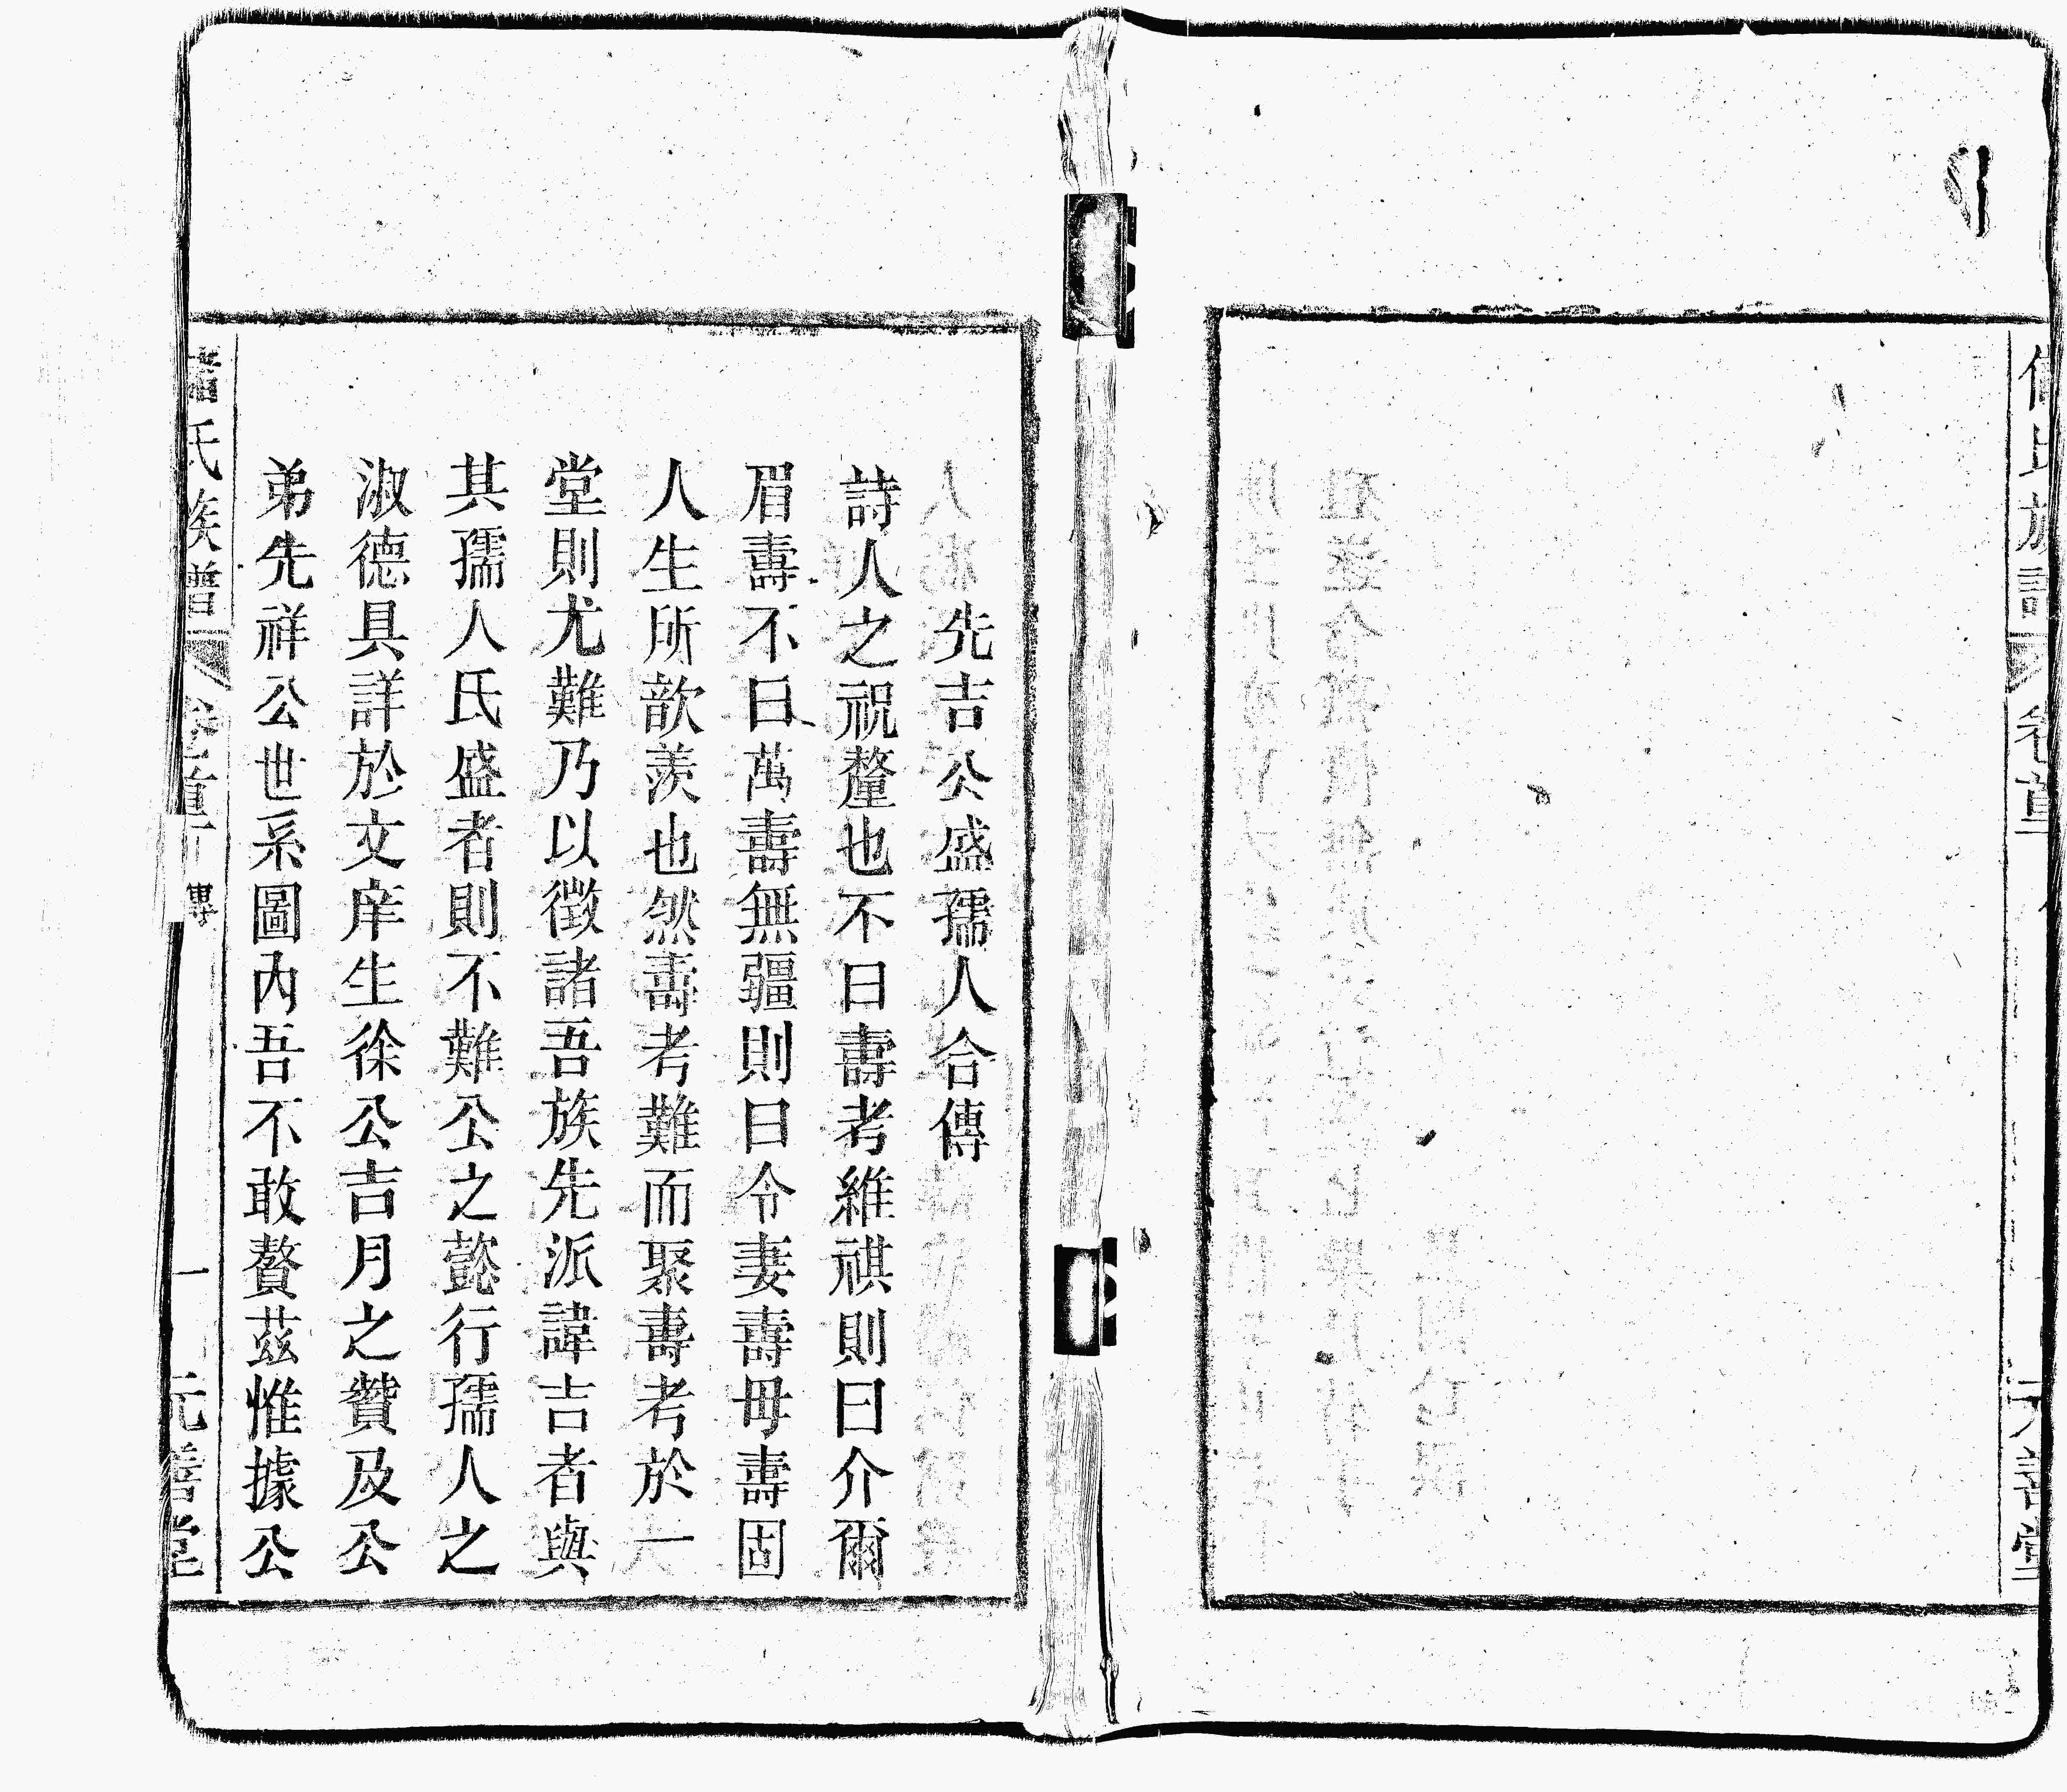 先吉公盛孺人合傳
詩人之祝釐也不曰壽考維祺則曰介爾
眉壽不曰萬壽無疆則曰令妻壽母壽固
人生所歆羨也然壽考難而聚壽考於一
堂則尤難乃以徵諸吾族先派諱吉者與
其孺人氏盛者則不難公之懿行孺人之
淑德具詳於文庠生徐公吉月之贊及公
弟先祥公世系圖內吾不敢贅茲惟據公
氏族譜 卷首 傳 一 元善堂